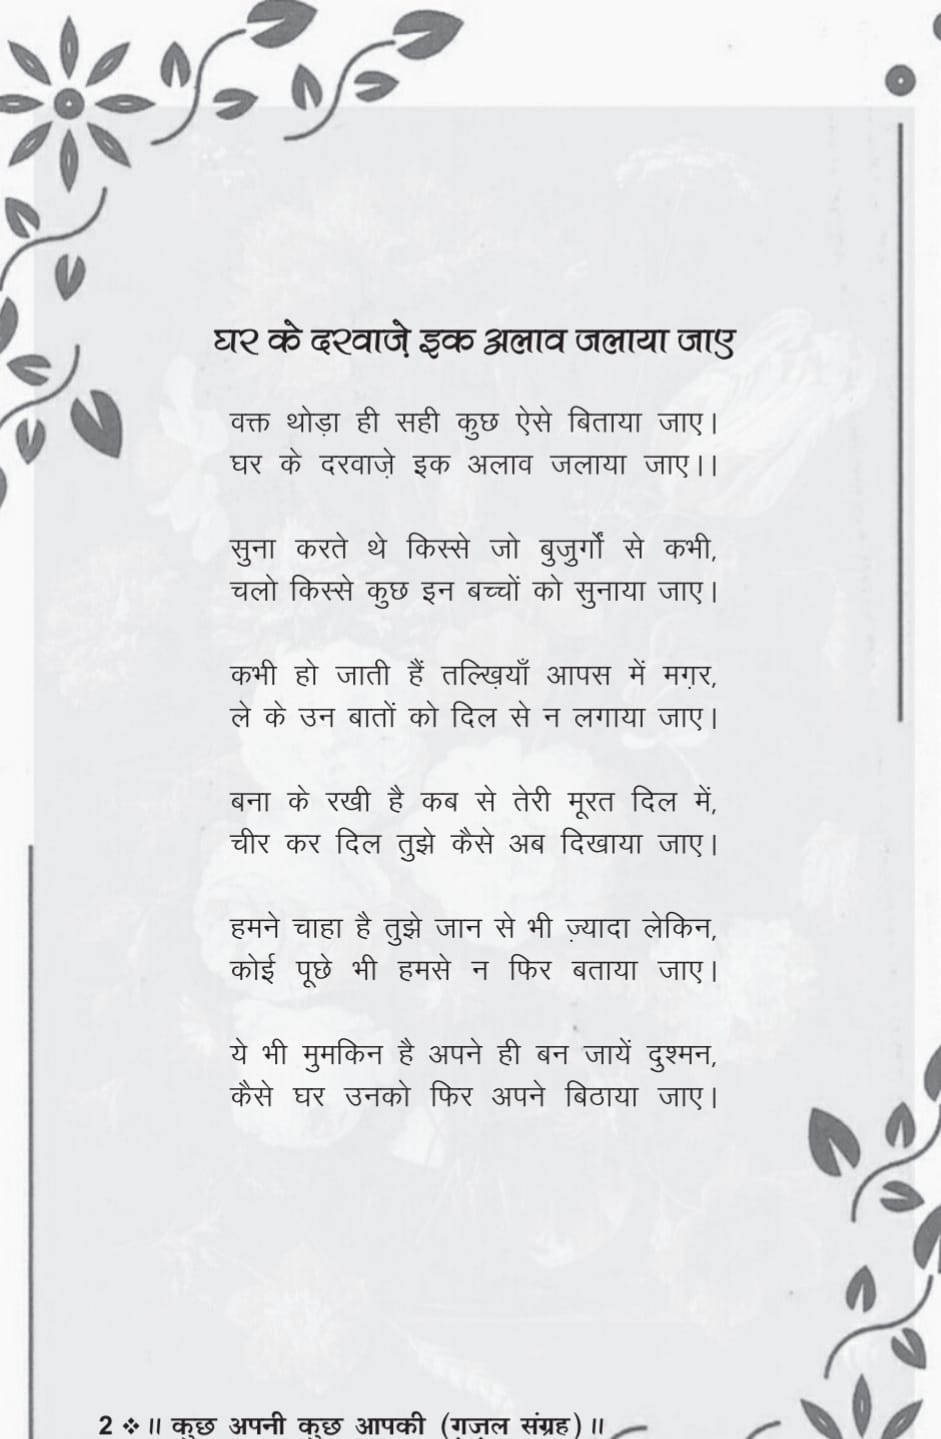 घर के दरवाज़े इक अलाव जलाया जाए
वक्त थोड़ा ही सही कुछ ऐसे बिताया जाए।
घर के दरवाज़े इक अलाव जलाया जाए।।
सुना करते थे किस्से जो बुजुर्गों से कभी,
चलो किस्से कुछ इन बच्चों को सुनाया जाए।
कभी हो जाती हैं तल्ख़ियाँ आपस में मग़र,
ले के उन बातों को दिल से न लगाया जाए।
बना के रखी है कब से तेरी मूरत दिल में,
चीर कर दिल तुझे कैसे अब दिखाया जाए।
हमने चाहा है तुझे जान से भी ज़्यादा लेकिन,
कोई पूछे भी हमसे न फिर बताया जाए।
ये भी मुमकिन है अपने ही बन जायें दुश्मन,
कैसे घर उनको फिर अपने बिठाया जाए।
2 ❖ ॥ कुछ अपनी कुछ आपकी (ग़ज़ल संग्रह) ॥